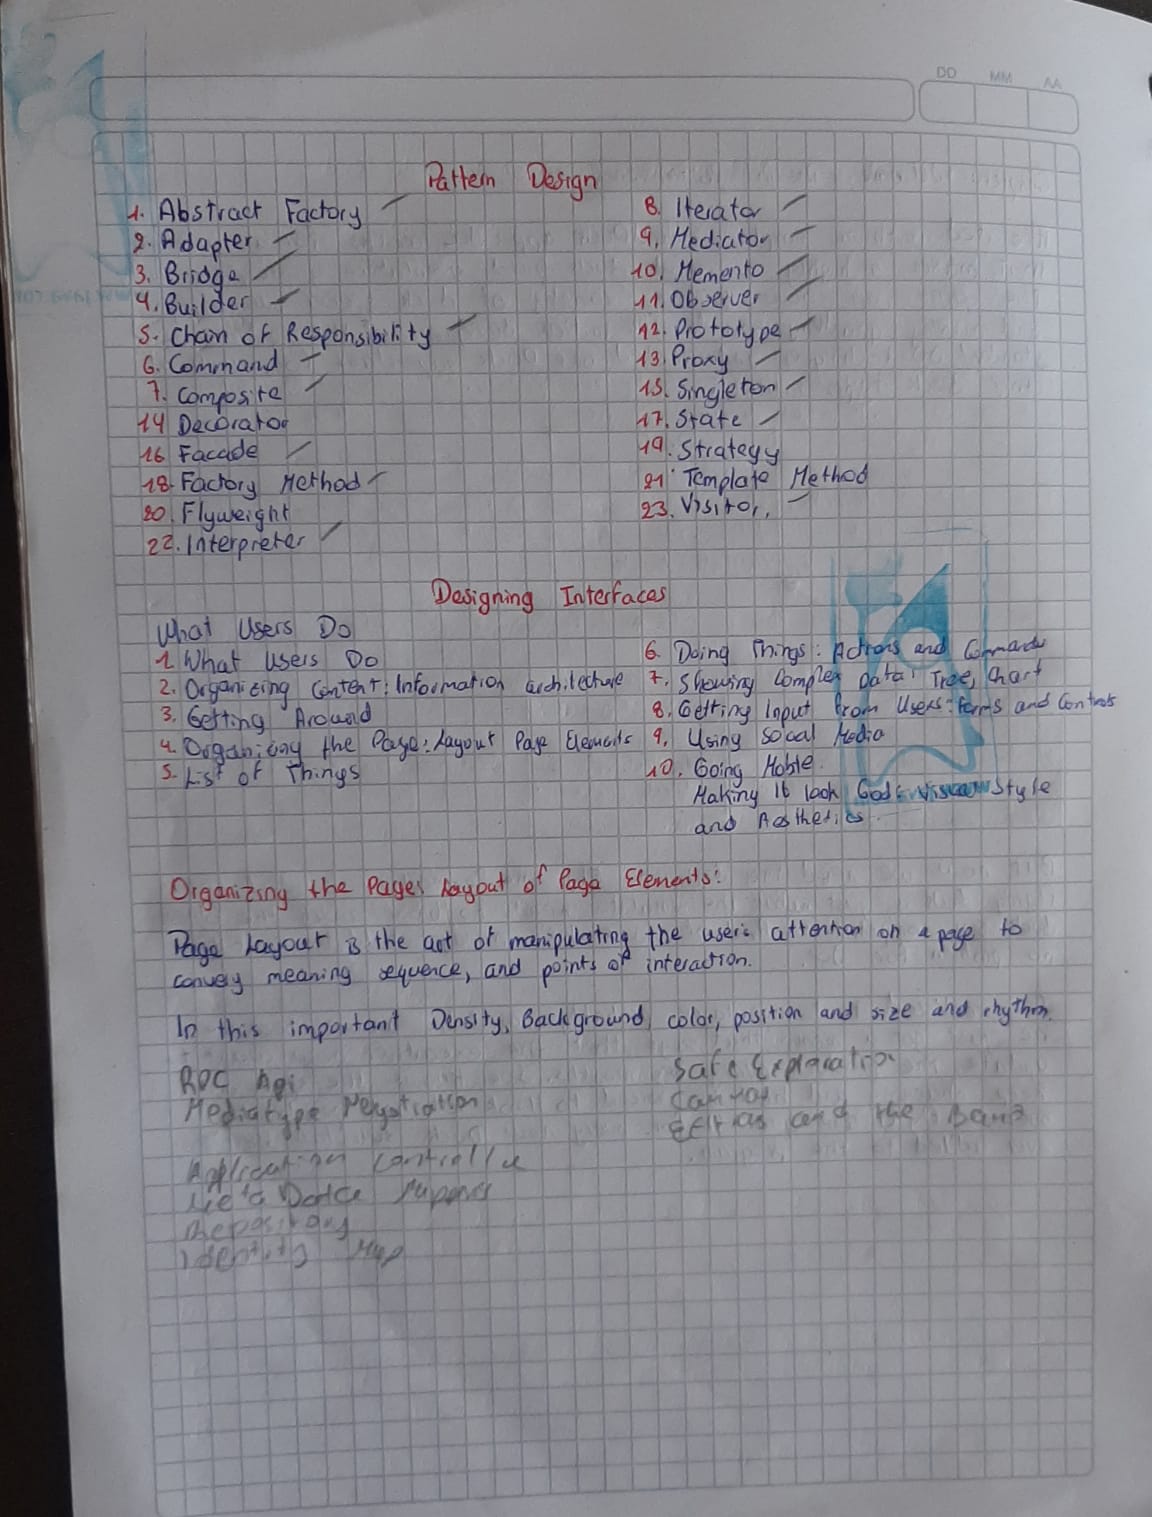 DD MM AA
Pattern Design
1. Abstract Factory
2. Adapter
3. Bridge
4. Builder
5. Chain of Responsibility
6. Command
7. Composite
14 Decorator
16 Facade
18. Factory Method
20. Flyweight
22. Interpreter
8. Iterator
9. Mediator
10. Memento
11. Observer
12. Prototype
13. Proxy
15. Singleton
17. State
19. Strategy
21. Template Method
23. Visitor,
Designing Interfaces
What Users Do
1. What Users Do
2. Organizing Content: Information architecture
3. Getting Around
4. Organizing the Page: Layout Page Elements
5. List of Things
6. Doing Things: Actions and Commands
7. Showing Complex Data: Tree, Chart
8. Getting Input from Users: Forms and Controls
9. Using Social Media
10. Going Mobile.
Making It look Good: Visual Style
and Aesthetics.
Organizing the Page: Layout of Page Elements:
Page Layout is the act of manipulating the user's attention on a page to
convey meaning sequence, and points of interaction.
In this important Density, Background color, position and size and rhythm.
Safe Exploration
and the
Repository
Identity Map